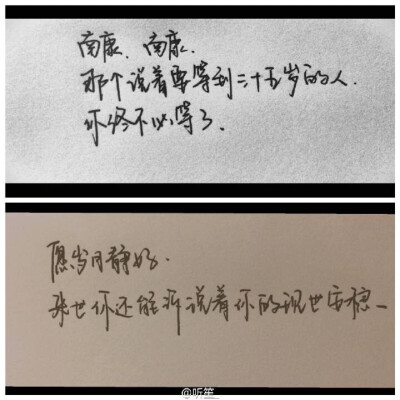 南康、南康.
那个说着要等到三十五岁的人.
你终不必等了.
愿岁月静好.
来世你还能诉说着你的现世安稳
@听笙